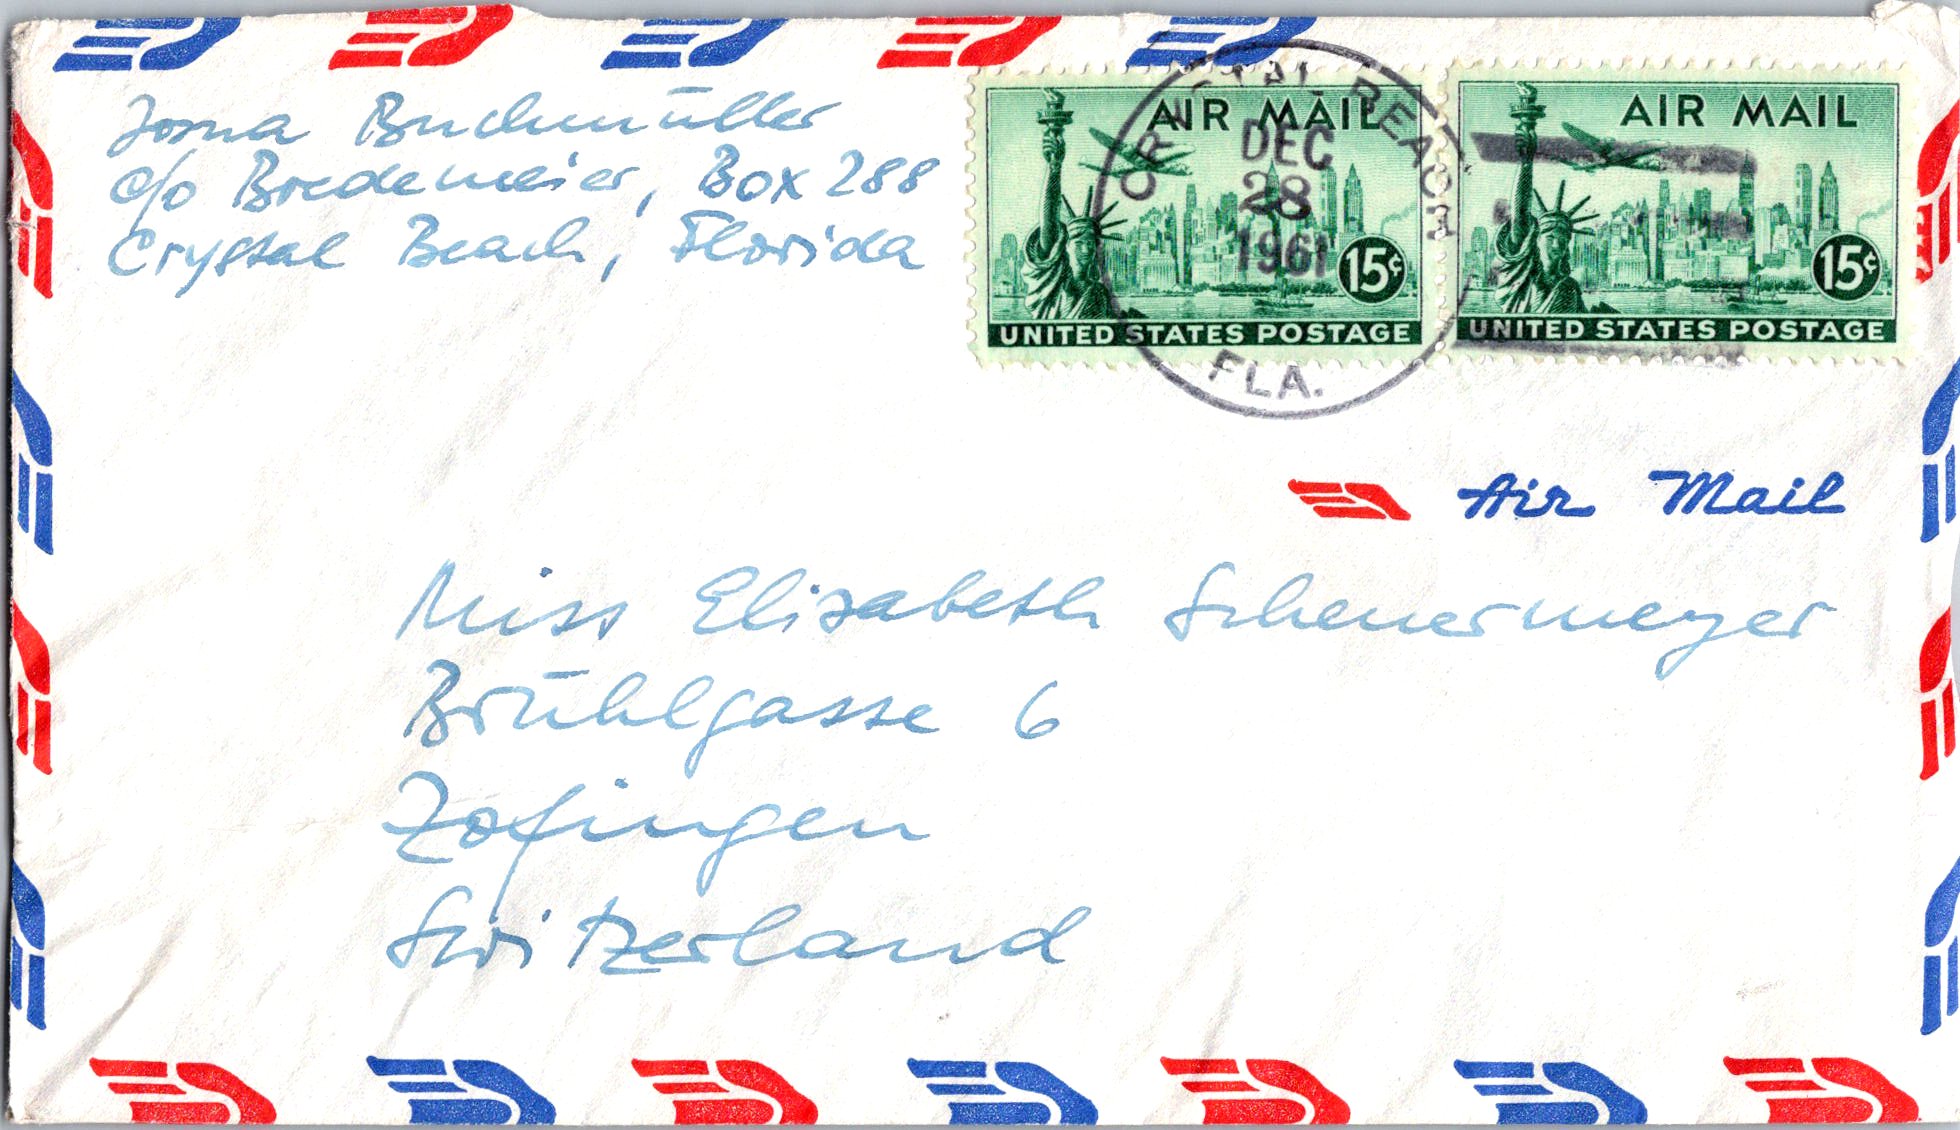 Josua Buchmüller
c/o Bredemeier, Box 288
Crystal Beach, Florida
AIR MAIL
15¢
UNITED STATES POSTAGE
AIR MAIL
15¢
UNITED STATES POSTAGE
CRYSTAL BEACH
DEC
28
1961
FLA.
Air Mail
Miss Elisabeth Scheuermeyer
Brühlgasse 6
Zofingen
Switzerland